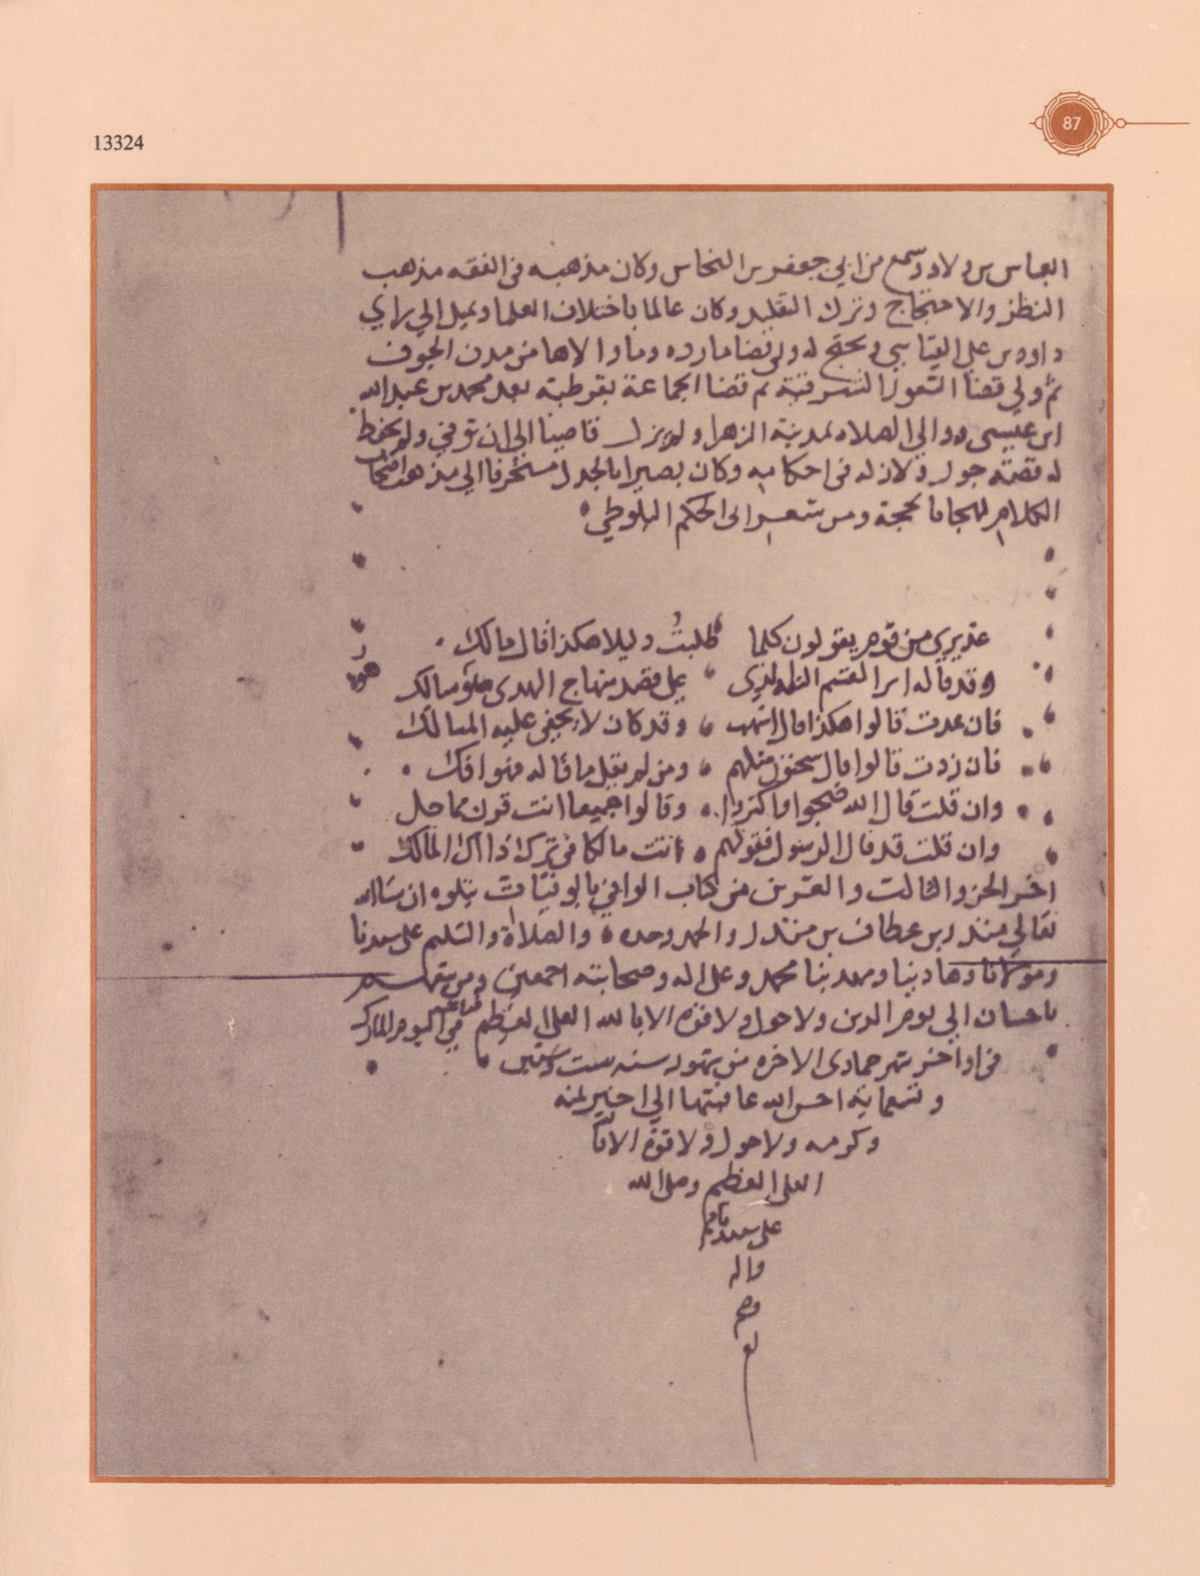 87
13324
العباس بن ولاد وسمع من ابي جعفر بن النحاس وكان مذهبه فى الفقه مذهب
النظر والاحتجاج وترك التقليد وكان عالما باختلاف العلما ويميل الي راي
داود بن علي العباسي ويحتج له ولي قضا مارده وما والاها من مدن الجوف
ثم ولي قضا الثغور الشرقية ثم قضا الجماعة بقرطبة بعد محمد بن عبد الله
ابن عيسى ووالي الصلاه بمدينة الزهرا ولم يزل قاضيا الي ان توفي ولم يحفظ
له قصته جور ولا زله فى احكامه وكان بصيرا بالجدل منحرفا الي مذهب اصحاب
الكلام لهجا بالحجة ومن شعر ابى الحكم البلوطي
عذيري من قوم يقولون كلما طلبتُ دليلا هكذا قال مالك
وقد قاله ابن القسم الذى على قصد منهاج الهدى هو سالك
فان عدت قالوا هكذا قال اشهب وقد كان لا يخفى عليه المسالك
فان زدت قالوا قال سحنون مثلهم ومن لم يقل ما قاله فهو افك
وان قلت قال الله ضجوا واكثروا وقالوا جميعا انت قرن مماحل
وان قلت قد قال الرسول فقولهم اتت مالكا فى ترك ذاك المالك
اخر الجزو الثالث والعشرين من كتاب الوافي بالوفيات يتلوه ان شا الله
تعالي منذر بن عطاف بن منذر والحمد وحده والصلاة والتسليم على سيدنا
ومولانا وهادينا ومهدينا محمد وعلى اله وصحابته اجمعين ومن تبعهم
باحسان الي يوم الدين ولا حول ولا قوه الا بالله العلى العظيم فى اليوم المبارك
فى اواخر شهر جمادى الاخره من شهور سنه ست وستين
وتسعمايه احسن الله عاقبتها الي اخير بمنه
وكرمه ولا حول ولا قوة الا بالله
العلى العظيم وصلى الله
على سيدنا محمد
واله
وصحبه